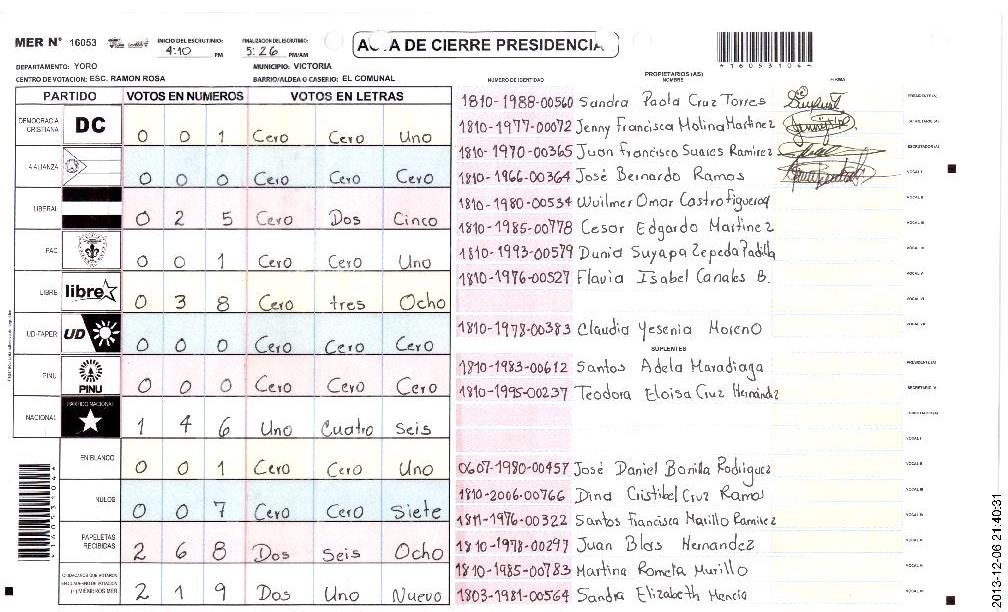 MER N° 16053 INICIO DEL ESCRUTINIO: 4:10 PM FINALIZACION DEL ESCRUTINIO: 5:26 PM/AM
ACTA DE CIERRE PRESIDENCIAL
*16053104*
DEPARTAMENTO: YORO MUNICIPIO: VICTORIA
CENTRO DE VOTACION: ESC. RAMON ROSA BARRIO/ALDEA O CASERIO: EL COMUNAL
PARTIDO VOTOS EN NUMEROS VOTOS EN LETRAS
DEMOCRACIA CRISTIANA DC 0 0 1 Cero Cero Uno
LA ALIANZA 0 0 0 Cero Cero Cero
LIBERAL 0 2 5 Cero Dos Cinco
PAC 0 0 1 Cero Cero Uno
LIBRE libre 0 3 8 Cero tres Ocho
UD-FAPER UD 0 0 0 Cero Cero Cero
PINU PINU 0 0 0 Cero Cero Cero
NACIONAL PARTIDO NACIONAL 1 4 6 Uno Cuatro Seis
EN BLANCO 0 0 1 Cero Cero Uno
NULOS 0 0 7 Cero Cero Siete
PAPELETAS RECIBIDAS 2 6 8 Dos Seis Ocho
CIUDADANOS QUE VOTARON EN CUADERNO DE VOTACION (+) MIEMBROS MER 2 1 9 Dos Uno Nueve
NUMERO DE IDENTIDAD PROPIETARIOS (AS) NOMBRE FIRMA
1810-1988-00560 Sandra Paola Cruz Torres PRESIDENTE(A)
1810-1977-00072 Jenny Francisca Molina Martinez SECRETARIO(A)
1810-1970-00365 Juan Francisco Suares Ramirez ESCRUTADOR(A)
1810-1966-00364 José Bernardo Ramos VOCAL I
1810-1980-00534 Wuilmer Omar Castro Figueroa VOCAL II
1810-1985-00778 Cesar Edgardo Martinez VOCAL III
1810-1993-00579 Dunia Suyapa Zepeda Padilla
1810-1976-00527 Flavia Isabel Canales B. VOCAL V
VOCAL VI
1810-1978-00383 Claudia Yesenia Moreno
SUPLENTES
1810-1983-00612 Santos Adela Maradiaga PRESIDENTE(A)
1810-1995-00237 Teodora Eloisa Cruz Hernández SECRETARIO(A)
ESCRUTADOR(A)
VOCAL I
0607-1980-00457 José Daniel Bonilla Rodriguez VOCAL II
1810-2006-00766 Dina Cristibel Cruz Ramos VOCAL III
1811-1976-00322 Santos Francisca Murillo Ramirez
1810-1978-00297 Juan Blas Hernandez
1810-1985-00783 Martina Rometa Murillo
1803-1981-00564 Sandra Elizabeth Mencia
*16053104*
2013-12-06 21:40:31